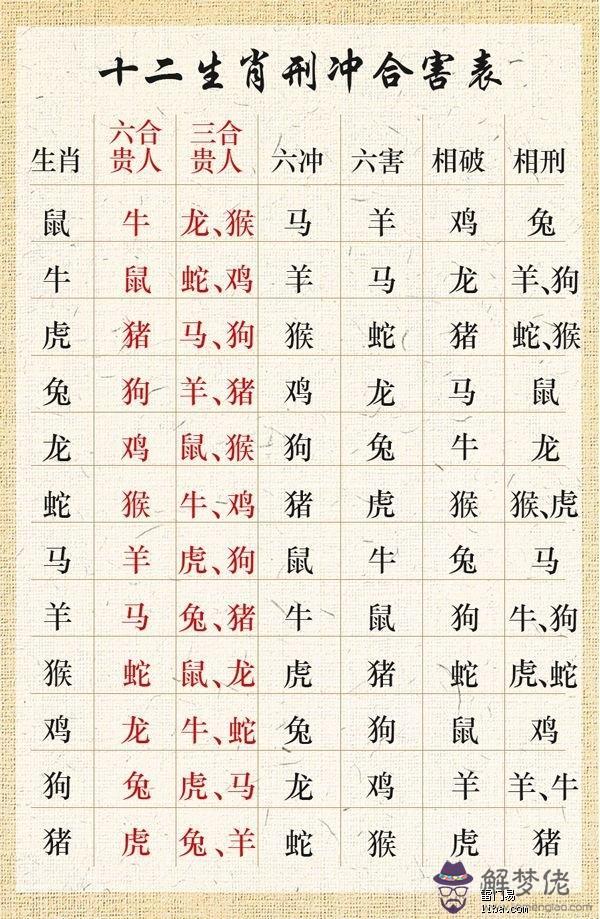 十二生肖刑冲合害表
生肖 六合贵人 三合贵人 六冲 六害 相破 相刑
鼠 牛 龙、猴 马 羊 鸡 兔
牛 鼠 蛇、鸡 羊 马 龙 羊、狗
虎 猪 马、狗 猴 蛇 猪 蛇、猴
兔 狗 羊、猪 鸡 龙 马 鼠
龙 鸡 鼠、猴 狗 兔 牛 龙
蛇 猴 牛、鸡 猪 虎 猴 猴、虎
马 羊 虎、狗 鼠 牛 兔 马
羊 马 兔、猪 牛 鼠 狗 牛、狗
猴 蛇 鼠、龙 虎 猪 蛇 虎、蛇
鸡 龙 牛、蛇 兔 狗 鼠 鸡
狗 兔 虎、马 龙 鸡 羊 羊、牛
猪 虎 兔、羊 蛇 猴 虎 猪
解梦佬
雷门易